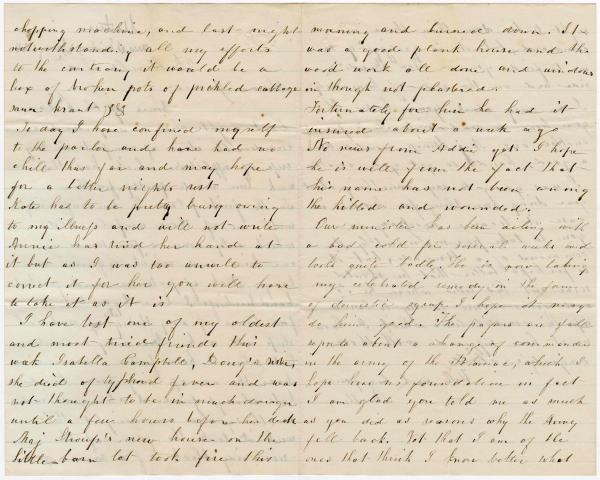 chopping machine, and last night
notwithstanding all my efforts
to the contrary, it would be a
box of broken pots of pickled cabbage
saur kraut
To day I have confined myself
to the parlor and have had no
chill thus far and may hope
for a better nights rest
Kate has to be pretty busy owing
to my illness and will not write
Annie has tried her hand at
it but as I was too unwell to
correct it for her you will have
to take it as it is
I have lost one of my oldest
and most tried friends this
week Isabella Campbell, Doug's sister,
she died of typhoid fever and was
not thought to be in much danger
until a few hours before her death
Maj Stroup's new house on the
little barn lot took fire this
morning and burned down. It
was a good plank house and the
wood work all done and windows
in though not plastered.
Fortunately for him he had it
insured about a week ago
No news from Addie yet. I hope
he is well from the fact that
his name has not been among
the killed and wounded.
Our minister has been ailing with
a bad cold for several weeks and
looks quite badly. He is now taking
my celebrated remedy in the form
of domestic syrup I hope it may
do him good. The papers are full
reports about a change of commander
in the army of the Potomac, which I
hope have no foundation in fact
I am glad you told me as much
as you did as reasons why the Army
fell back. Not that I am of the
ones that think I know better what